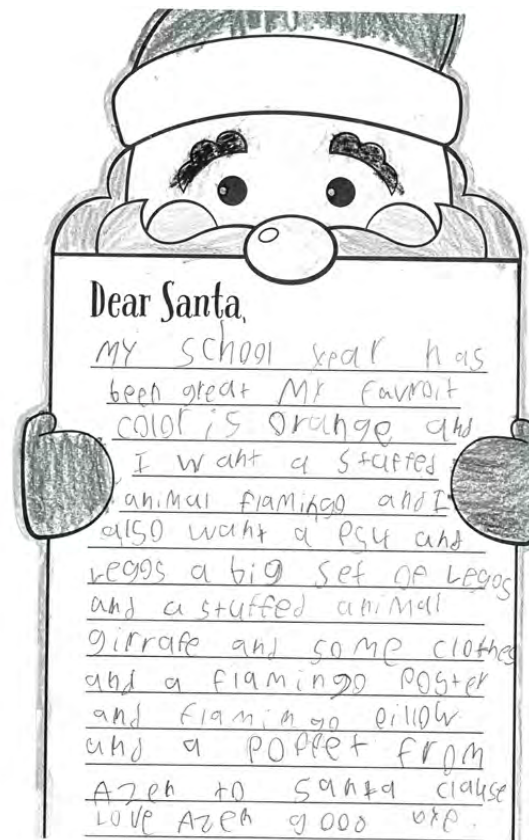 Dear Santa,
MY school year has
been great MY favroit
color is orange and
I want a stuffed
animal flamingo and I
also want a PS4 and
Legos a big set of Legos
and a stuffed animal
girrafe and some clothes
and a flamingo Poster
and flamingo pillow
and a POPPet from
Azen to santa clause
Love Azen good